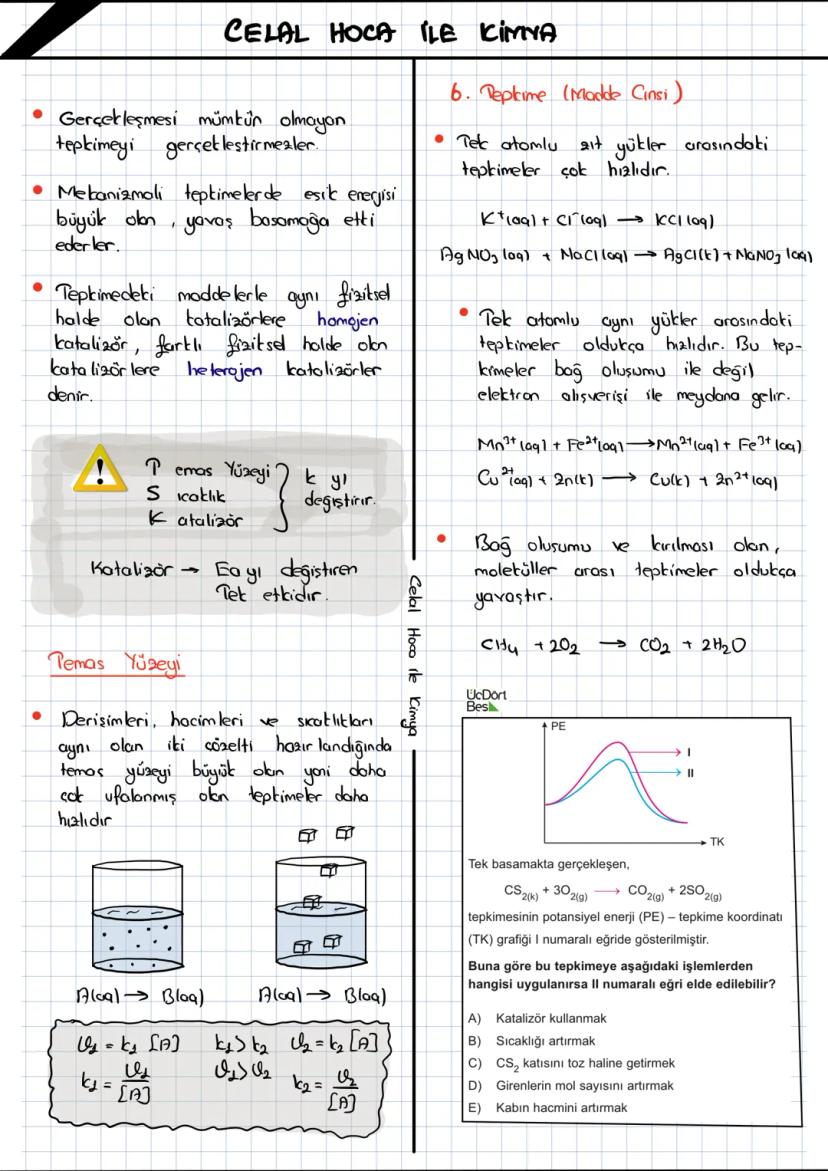 CELAL HOCA İLE KİMYA
• Gerçekleşmesi mümkün olmayan
tepkimeyi gerçekleştirmezler.
• Mekanizmalı tepkimelerde eşik enerjisi
büyük olan, yavaş basamağa etki
ederler.
• Tepkimedeki maddelerle aynı fiziksel
halde olan katalizörlere homojen
katalizör, farklı fiziksel halde olan
katalizörlere heterojen katalizörler
denir.
Temas Yüzeyi
Sıcaklık
Katalizör
k yı
değiştirir.
Katalizör → Ea yı değiştiren
Tek etkidir.
Temas Yüzeyi
• Derişimleri, hacimleri ve sıcaklıkları
aynı olan iki çözelti hazırlandığında
temas yüzeyi büyük olan yani daha
çok ufalanmış olan tepkimeler daha
hızlıdır
A(aq) → B(aq) A(aq) → B(aq)
ϑ₁ = k₁ [A] k₁ > k₂ ϑ₂ = k₂ [A]
k₁ = ϑ₁/[A] ϑ₁ > ϑ₂ k₂ = ϑ₂/[A]
Celal Hoca ile Kimya
6. Tepkime (Madde Cinsi)
• Tek atomlu zıt yükler arasındaki
tepkimeler çok hızlıdır.
K⁺(aq) + Cl⁻(aq) → KCl(aq)
AgNO₃(aq) + NaCl(aq) → AgCl(k) + NaNO₃(aq)
• Tek atomlu aynı yükler arasındaki
tepkimeler oldukça hızlıdır. Bu tep-
kimeler bağ oluşumu ile değil
elektron alışverişi ile meydana gelir.
Mn³⁺(aq) + Fe²⁺(aq) → Mn²⁺(aq) + Fe³⁺(aq)
Cu²⁺(aq) + Zn(k) → Cu(k) + Zn²⁺(aq)
• Bağ oluşumu ve kırılması olan,
moleküller arası tepkimeler oldukça
yavaştır.
CH₄ + 2O₂ → CO₂ + 2H₂O
ÜçDört
Beş
PE
I
II
TK
Tek basamakta gerçekleşen,
CS₂(k) + 3O₂(g) → CO₂(g) + 2SO₂(g)
tepkimesinin potansiyel enerji (PE) – tepkime koordinatı
(TK) grafiği I numaralı eğride gösterilmiştir.
Buna göre bu tepkimeye aşağıdaki işlemlerden
hangisi uygulanırsa II numaralı eğri elde edilebilir?
A) Katalizör kullanmak
B) Sıcaklığı artırmak
C) CS₂ katısını toz haline getirmek
D) Girenlerin mol sayısını artırmak
E) Kabın hacmini artırmak